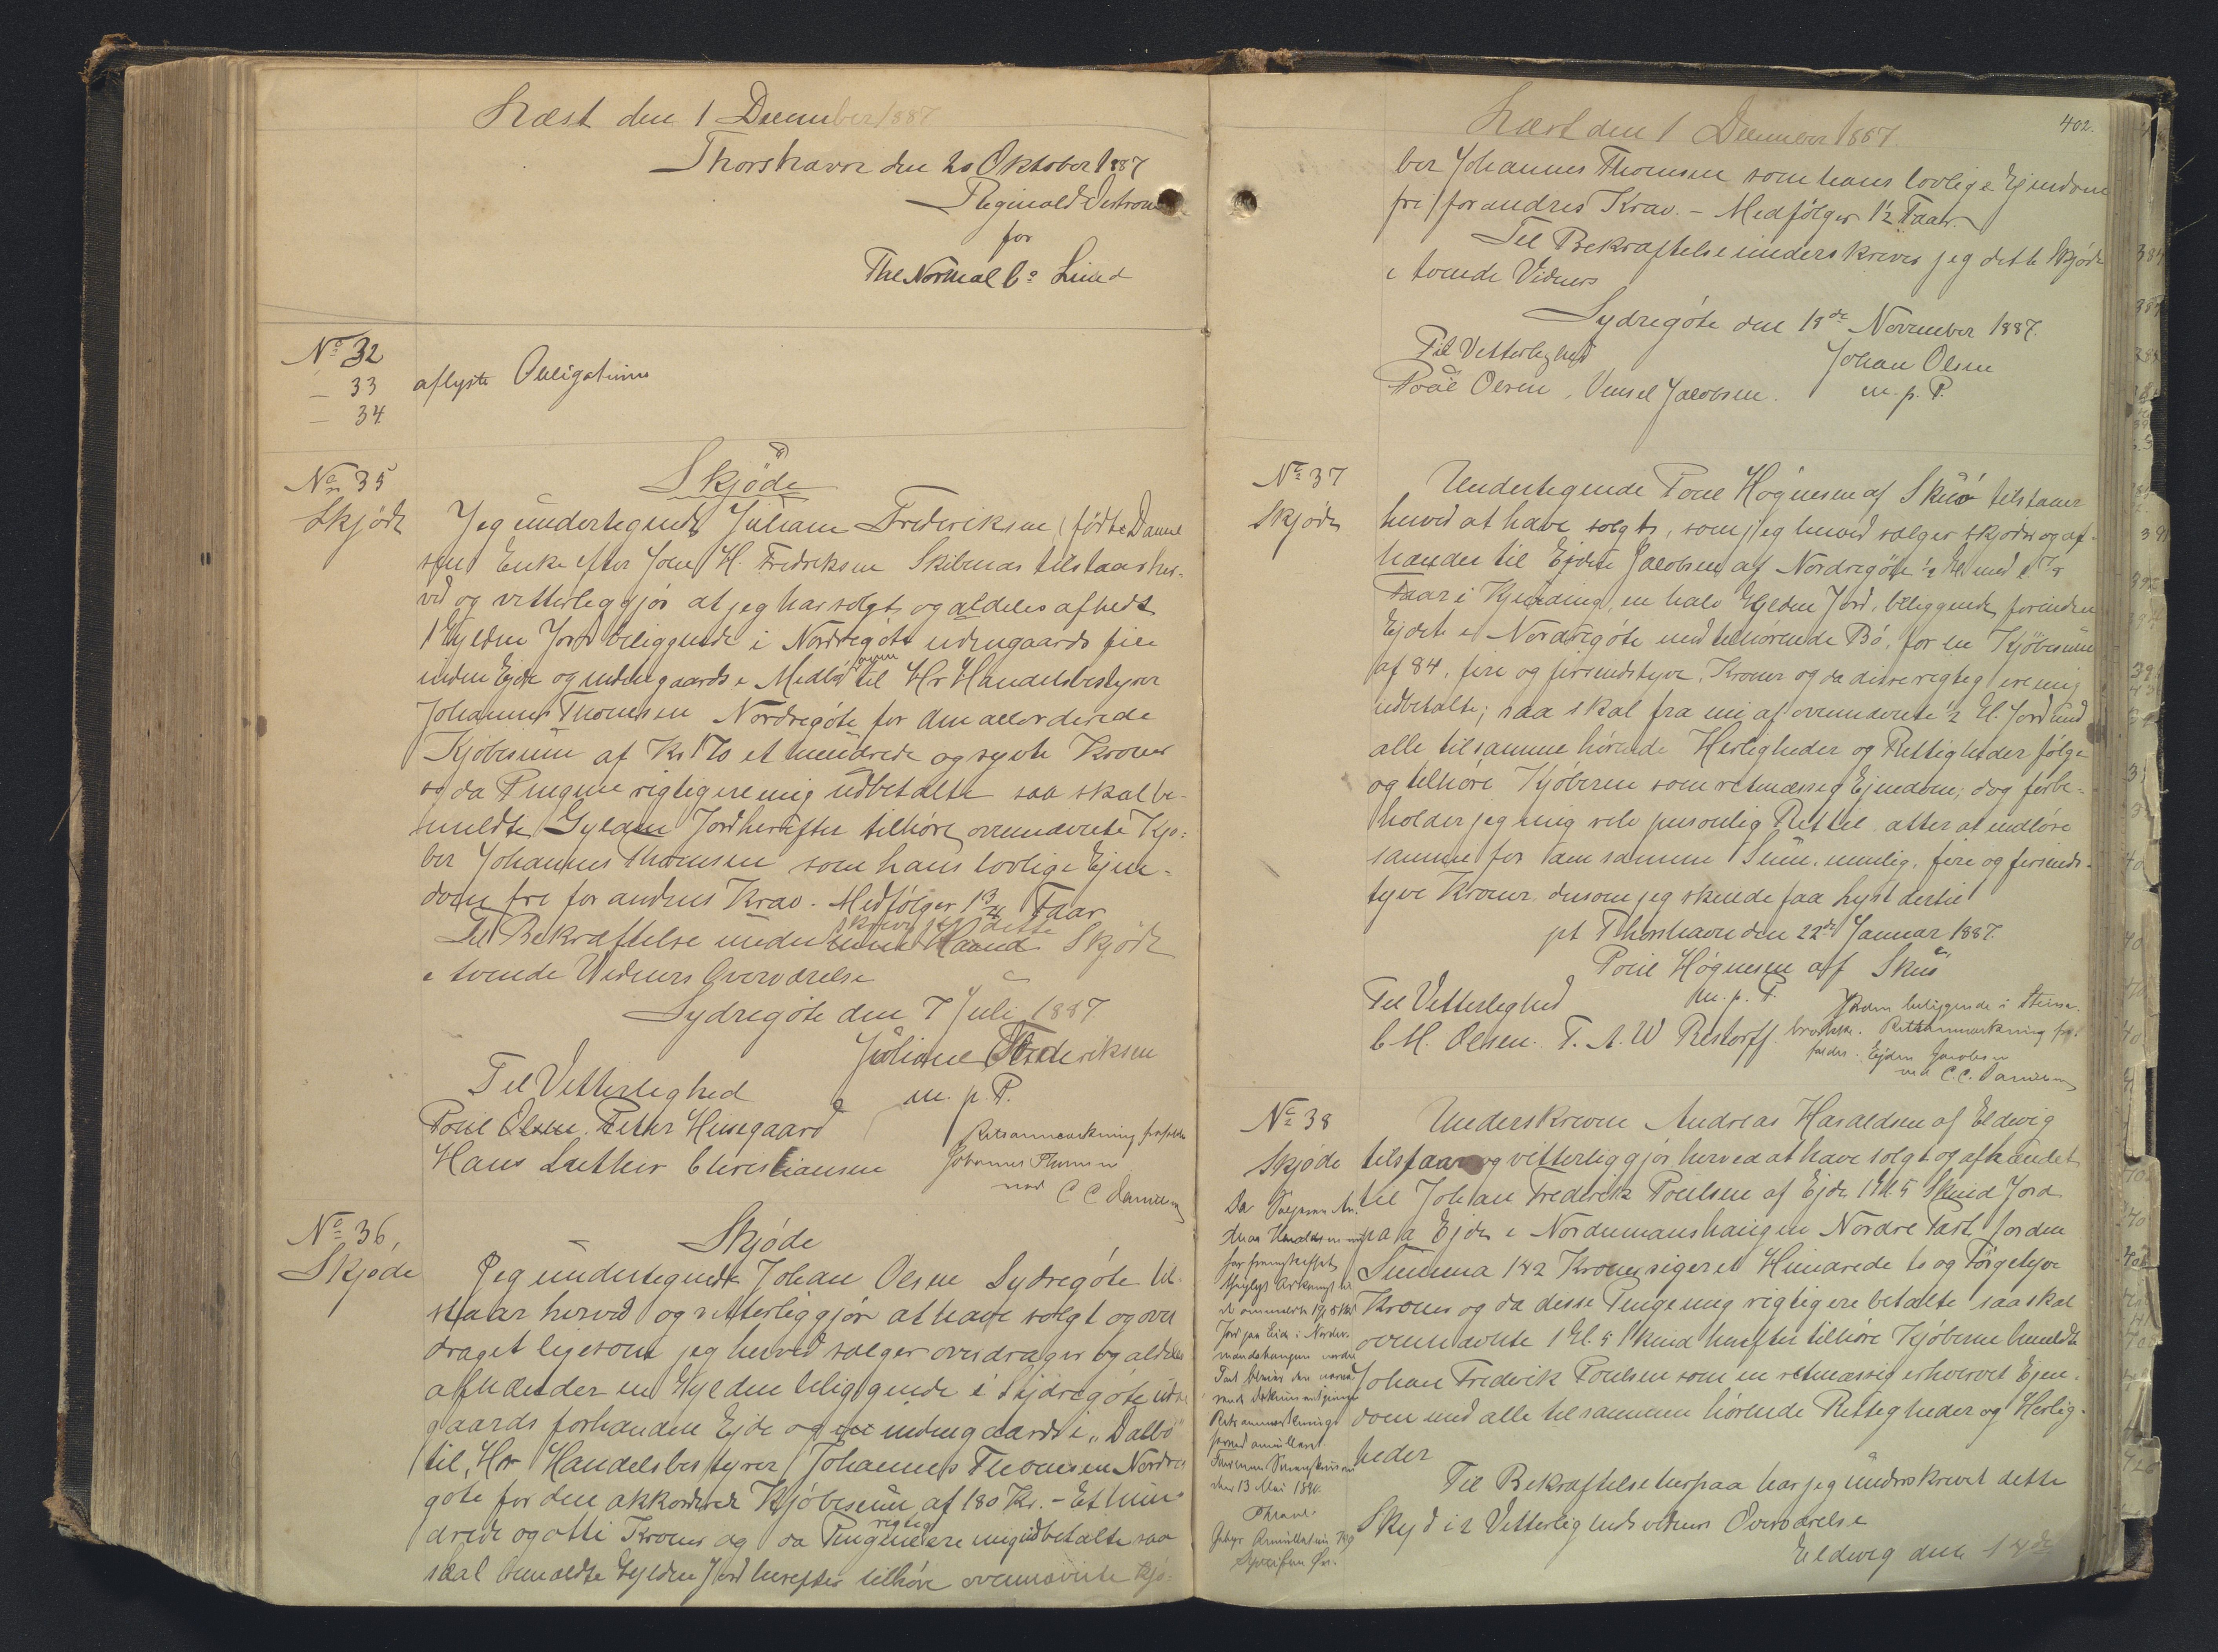 Læst den 1 December 1887
Thorshavn den 20 Oktober 1887
Reginald
for
The Normal Co Limd
No 32
— 33 aflyste Obligationer
— 34
No 35
Skjøde
Skjøde
Jeg undertegnede Juliane Frederiksen (fødte Daniel
sen Enke efter Joen H. Fredriksen Skibenæs tilstaar her-
ved og vitterliggjør at jeg har solgt og aldeles afhedt
1 Gylden Jord beliggende i Nordregøte udengaards
inden Ejde og indengaards i til Hr Handelsbestyrer
Johannes Thomsen Nordregøte for den accorderede
Kjøbesum af Kr 170 et hundrede og syvti Kroner
og da Pengene rigtig ere mig udbetalte saa skal be-
meldte Gylden Jord herefter tilhøre ovennævnte Kjø-
ber Johannes Thomsen som hans lovlige Ejen-
dom fri for andres Krav. Medfølger 1 3/4 Faar
Til Bekræftelse underskrever jeg dette Skjøde
i tvende Vidners Overværelse
Sydregøte den 7 Juli 1887
Juliane Frederiksen
m. p. P.
Til Vitterleghed
Poul Olsen. Peter Husegaard
Hans Luther Christiansen
Retsanmærkning frafaldes
Johannes Thomsen
ved C C Danielsen
No 36,
Skjøde
Skjøde
Jeg undertegnede Johan Olsen Sydregøte til-
staar herved og vitterliggjør at have solgt og over
draget ligesom jeg herved sælger overdrager og aldeles
afhænder en Gylden beliggende i Sydregøte uden
gaards forhanden Ejde og indengaards i "Dalbø"
til, Hr Handelsbestyrer Johannes Thomsen Nordre
gøte for den akkorderede Kjøbesum af 180 Kr. - Et hun-
drede og otti Kroner og da Pengene rigtig ere mig udbetalte saa
skal bemældte Gylden Jord herefter tilhøre ovennævnte Kjø-
402.
Læst den 1 December 1887.
ber Johannes Thomsen som hans lovlige Ejendom
fri for andres Krav. - Medfølger 1½ Faar.
Til Bekræftelse underskrever jeg dette Skjøde
i tvende Vidners
Sydregøte den 18de November 1887.
Til Vetterleghed
Johan Olsen
m. p. P.
Poul Olsen, Jacobsen.
No 37
Skjøde
Undertegnede Poul Høgnesen af Skuø tilstaaer
herved at have solgt, som jeg herved sælger skjøder og af-
hænder til Ejdere Jacobsen af Nordregøte ½ Gl. med
Faar i en halv Gylden Jord, beliggende forinden
Ejdet i Nordregøte med tilhørende Bø, for en Kjøbesum
af 84, fire og firsindstyve, Kroner og da disse rigtig ere mig
udbetalte; saa skal fra mi af ovennævnte ½ Gl. Jord med
alle tilsamme hørende Herligheder og Rettigheder følge
og tilhøre Kjøberen som retmæssig Ejendom; dog forbe-
holder jeg mig selv personlig Ret til atter at indløse
samme for den samme Sum, nemlig, fire og firsinds-
tyve Kroner, dersom jeg skulde faa Lyst dertil
pt Thorshavn den 22de Januar 1887.
Poul Høgnesen af Skuø
m. p. P.
Til Vetterleghed
C. M. Olsen. T. A. W Restorff
Jorden beliggende i
Retsanmærkning fra-
faldes. Ejden Jacobsen
ved C. C. Danielsen
No 38
Skjøde
Underskrevne Andreas Haraldsen af Eldevig
tilstaar og vitterliggjør herved at have solgt og afhændet
til Johan Frederik Poulsen af Ejde 1 Gl. 5 Skind Jord
paa Ejde i Nordumanshaugen Nordre Part, for den
Summa 142 Kroner siger et Hundrede to og Førgetyve
Kroner og da desse Penge mig rigtig ere betalte saa skal
ovennævnte 1 Gl. 5 Skind herefter tilhøre Kjøberne bemeldte
Johan Frederik Poulsen som en retmæssig erhvervet Ejen-
dom med alle tilsammen hørende Rettigheder og Herlig-
heder
Til Bekræftelse herpaa har jeg underskrevet dette
Skjød i 2 Vetterligheds vidners Overværelse
Eldevig den 14de
Da Sælgeren An-
dreas Haraldsen
har fremskaffet
thinglyst Adkomst til
Jord paa Eide i Norder-
mandshaugen nordre
Part
Retsanmærkning
herved annulleret
den 13 Mai 1890.